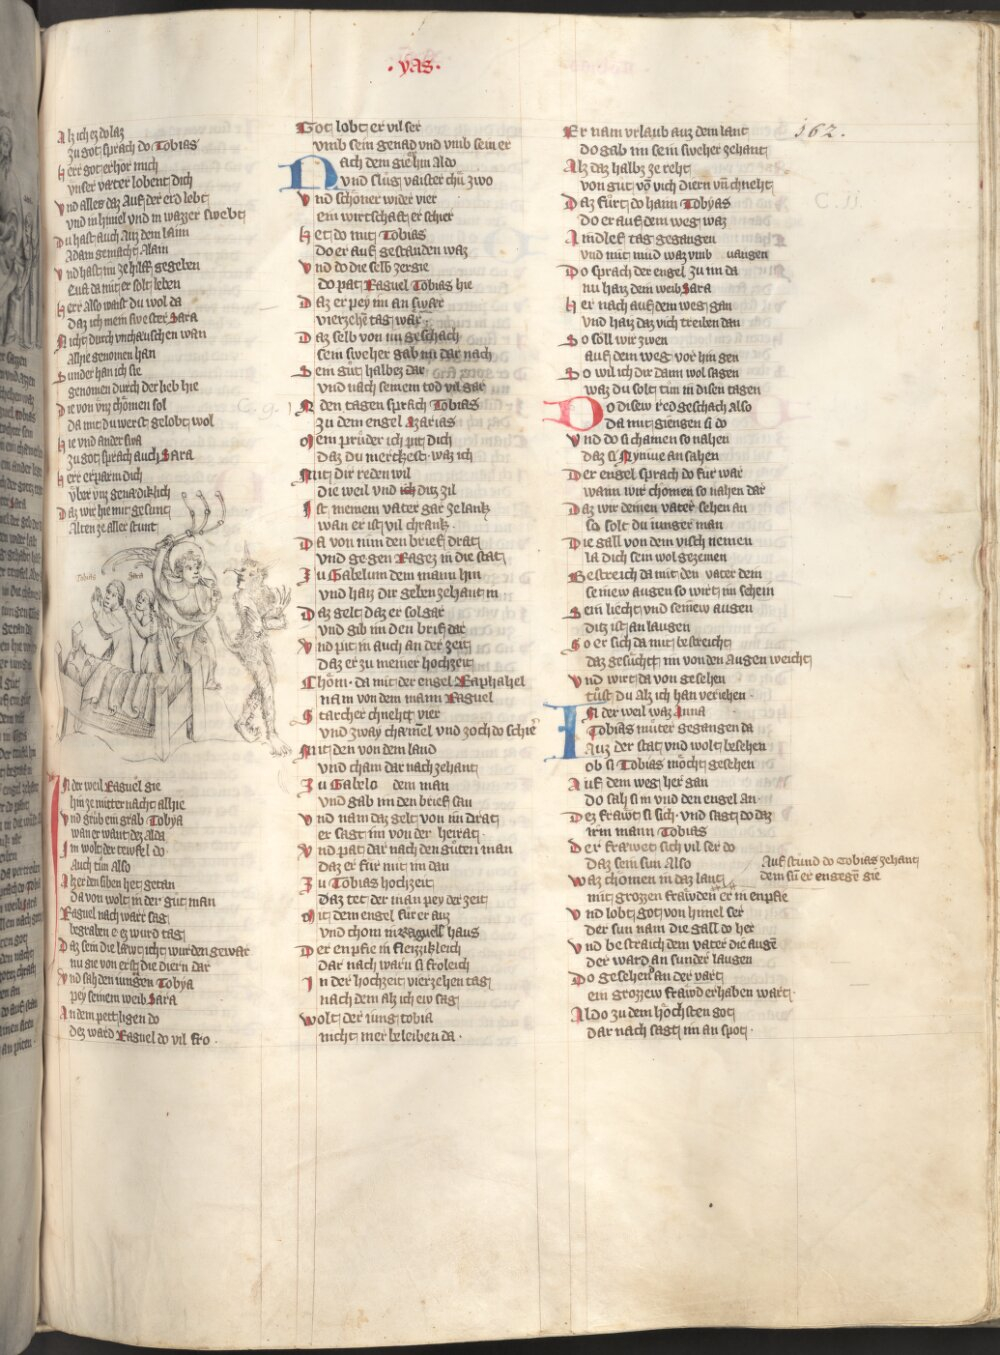 · yas ·
162.
Alz ich ez do laz
zu got sprach do Tobias
Herr got erhör mich
vnser väter lobent dich
Vnd alles daz auf der erd lebt
vnd in himel vnd in wazzer swebt
Du hast auch auz dem laim
Adam gemacht
Vnd hast im ze hilff gegeben
Eua da mit er solt leben
Herr also waist du wol da
daz ich mein swester Sara
Nicht durch vnchäusch en wan
Alhie genomen han
Sunder han ich sie
genomen durch der lieb hie
Die von vns chömen sol
da mit du werst gelobt wol
Hie vnd anderswa
zu got sprach auch Sara
Herr erparm dich
vber vns genädiklich
Daz wir hie mit gesunt
Alten ze aller stunt
Tobias Sara
In der weil Raguel gie
hin ze mitternacht alhie
Vnd grub ein grab Tobya
wan er wänt dez alda
Im wolt der teufel do
Auch tün also
Alz er den siben het getan
da von wolt in der gut man
Raguel nach warr sag
begraben e ez wurd tag
Daz sein die läwt icht wurden gewar
nu gie von erst die diern dar
Vnd sah den iungen Tobya
pey seinem weib Sara
An dem pett ligen do
dez ward Raguel do vil fro ·
Got lobt er vil ser
vmb sein genad vnd vmb sein er
Nach dem gie hin Aldo
vnd slug vaister chü zwo
Vnd schöner wider vier
ein wirtschaft er schier
Het do mit Tobias
do er auf gestanden waz
Vnd do die selb zergie
do pat Raguel Tobias hie
Daz er pey im an swär
vierzehen tag wär
Daz selb von im geschach
sein sweher gab im dar nach
Sein gut halbez dar
vnd nach seinem tod vil gar
In den tagen sprach Tobias
zu dem engel Azarias
Mein prüder ich pit dich
daz du merckest waz ich
Mit dir reden wil
die weil vnd ich ditz zil
Ist meinem vater gar ze lank
wan er ist vil chrank ·
Da von nim den brief drat
vnd ge gen Ragez in die stat
Zu Gabelum dem mann hin
vnd haiz dir geben zehant in
Daz gelt daz er sol gar
vnd gib im den brif dar
Vnd pit in auch an der zeit
daz er zu meiner hochzeit
Chöm · da mit der engel Raphahel
nam von dem mann Raguel
Starcher chneht vier
vnd zway chämel vnd zoch do schier
Mit den von dem land
vnd cham dar nach zehant
Zu Gabelo dem man
vnd gab im den brief san
Vnd nam daz gelt von im drat
er sagt im von der heirat ·
Vnd pat dar nach den guten man
daz er für mit im dan
Zu Tobias hochzeit
daz tet der man pey der zeit
Mit dem engel für er auz
vnd chom in Raguels haus
Der enpfie in fleizzikleich
dar nach warn si froleich
In der hochzeit vierzehen tag
nach dem alz ich ew sag
Wolt der iung tobia
nicht mer beleiben da ·
Er nam vrlaub auz dem lant
do gab im sein sweher zehant
Alz daz halbz ze reht
von gut von vich diern vnd chneht
Daz fürt do haim Tobyas
do er auf dem weg waz
Aindlef tag gegangen
vnd mit müd waz vmb uangen
Do sprach der engel zu im da
nu haiz dem weib Sara
Her nach auf dem weg gan
vnd haiz daz vich treiben dan
So soll wir zwen
auf dem weg vor hin gen
So wil ich dir dann wol sagen
waz du solt tün in disen tagen
Do disew red geschach also
da mit giengen si do
Vnd do si chamen so nahen
daz si Nyniue an sahen
Der engel sprach do für war
wann wir chömen so nahen dar
Daz wir deinen vater sehen an
so solt du iunger man
Die gall von dem visch nemen
la dich sein wol gezemen
Bestreich da mit den vater dem
seinew augen so wirt im schein
Sein liecht vnd seinew augen
ditz ist an laugen
So er sich da mit bestreicht
daz gesücht im von den augen weicht
Vnd wirt da von gesehen
tüst du alz ich han veriehen ·
In der weil waz Anna
Tobias muter gegangen da
Auz der stat vnd wolt besehen
ob si Tobias möcht gesehen
Auf dem weg her gan
do sah si in vnd den engel an ·
Dez frawt si sich · vnd sagt do daz
irm mann Tobias
Der frawet sich vil ser do
daz sein sun Also
Waz chömen in daz lant
Auf stünd do Tobias zehant
dem sun er engegen gie
mit grozzen frawden er in enpfie
Vnd lobt got von himel ser
der sun nam die gall do her
Vnd bestraich dem vater die augen
der ward an sunder laugen
Do gesehend an der vart
ein grozzew frawd erhaben wart ·
Aldo zu dem höchsten got
dar nach sagt im an spot ·